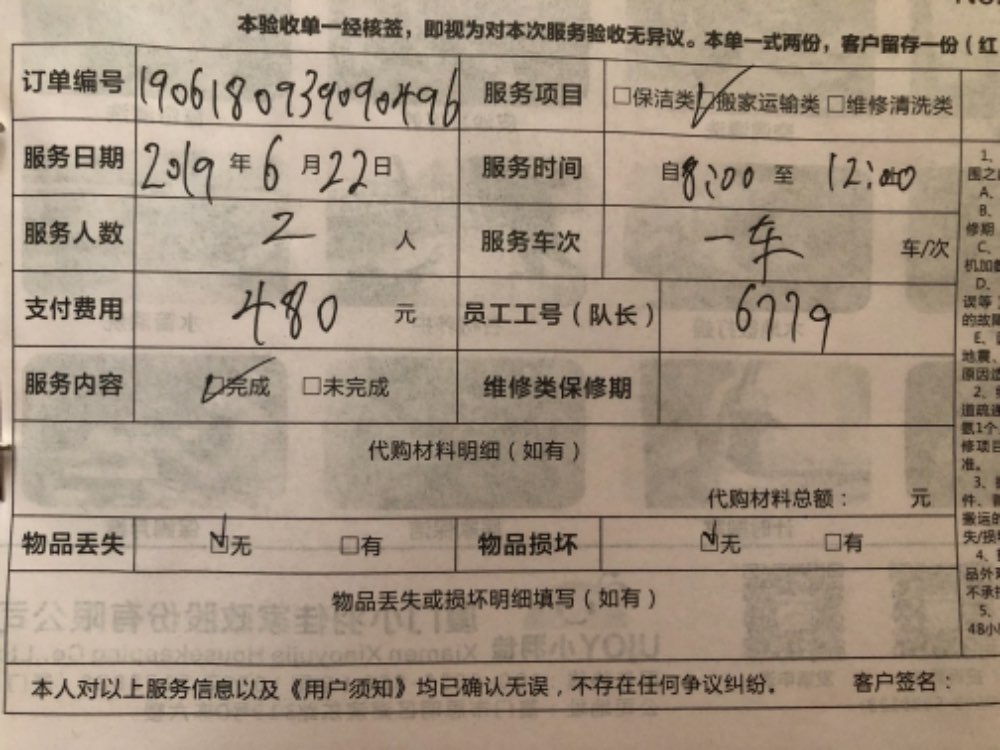 本验收单一经核签，即视为对本次服务验收无异议。本单一式两份，客户留存一份（红
订单编号 1906180939090496 服务项目 □保洁类 ☑搬家运输类 □维修清洗类
服务日期 2019年6月22日 服务时间 自8:00至12:00
服务人数 2 人 服务车次 一车 车/次
支付费用 480 元 员工工号（队长） 6779
服务内容 ☑完成 □未完成 维修类保修期
代购材料明细（如有）
代购材料总额： 元
物品丢失 ☑无 □有 物品损坏 ☑无 □有
物品丢失或损坏明细填写（如有）
本人对以上服务信息以及《用户须知》均已确认无误，不存在任何争议纠纷。 客户签名：
1、
围之
A、
B、
修期
C、
机加
D、
误等
的故
E、
地震、
原因
2、
道疏
氨1个
修项
准。
3、
件、
搬运的
失/损
4、
品外
不承
5、
48小